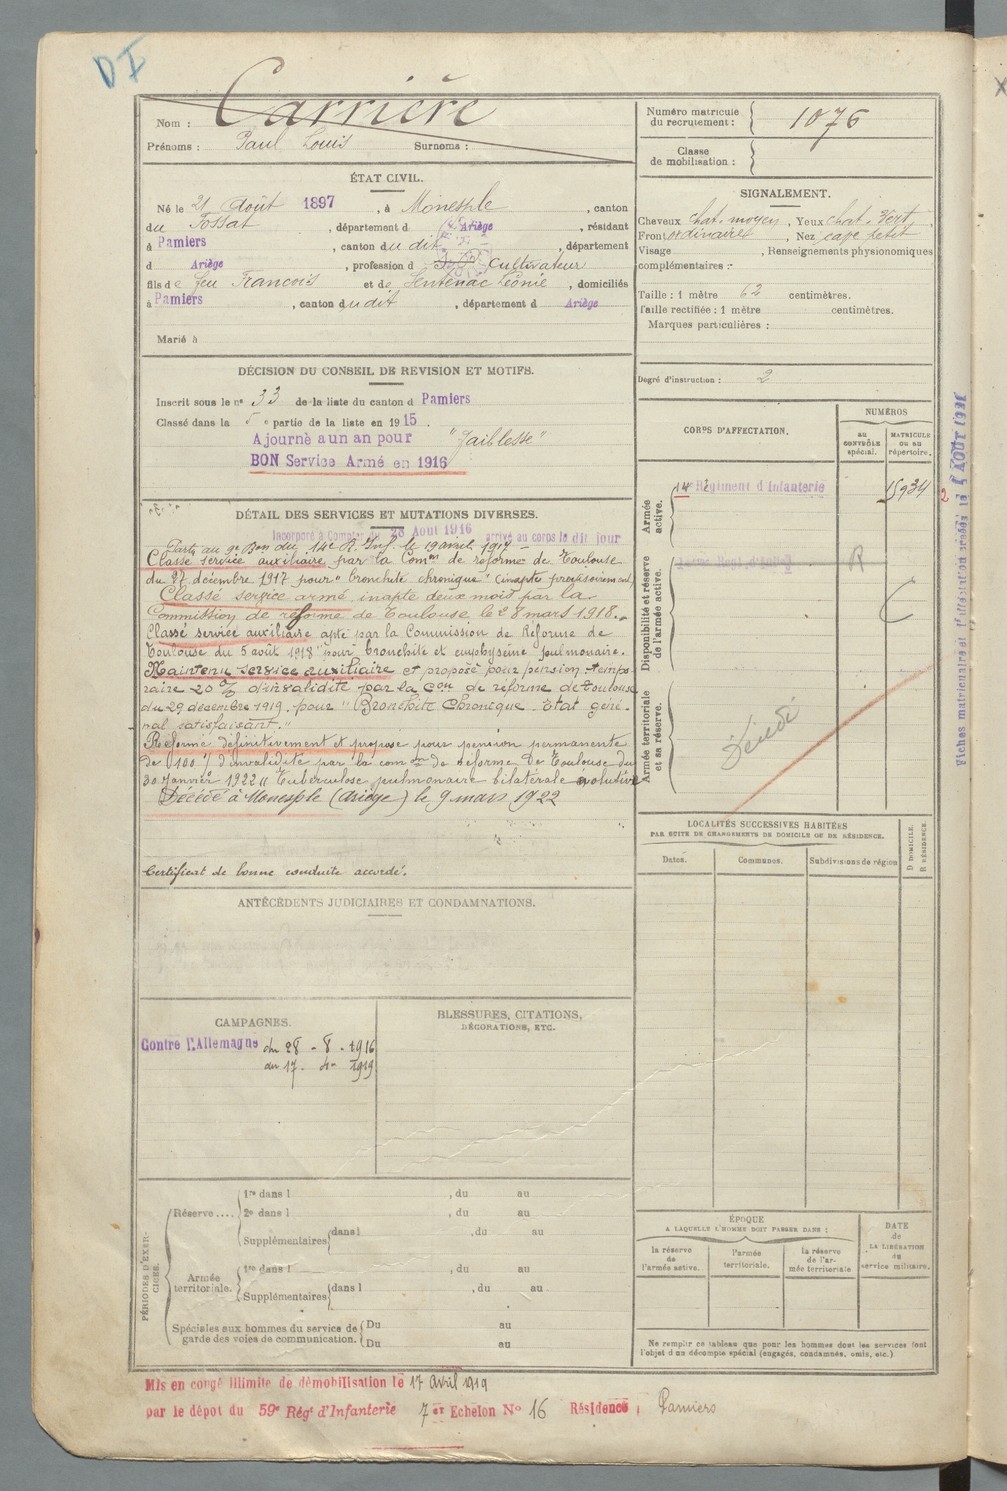 D I
Nom : Carrière
Prénoms : Paul Louis Surnoms :
Numéro matricule du recrutement : 1076
Classe de mobilisation :
ÉTAT CIVIL.
Né le 21 Août 1897, à Monesple, canton
du Fossat, département d Ariège, résidant
à Pamiers, canton du dit, département
d Ariège, profession d Cultivateur
fils de feu François et de Sentenac Léonie, domiciliés
à Pamiers, canton dudit, département d Ariège
Marié à
SIGNALEMENT.
Cheveux chat. moyen, Yeux chat. vert
Front ordinaire, Nez cave petit
Visage , Renseignements physionomiques
complémentaires :
Taille : 1 mètre 62 centimètres.
Taille rectifiée : 1 mètre centimètres.
Marques particulières :
Degré d'instruction : 2
DÉCISION DU CONSEIL DE REVISION ET MOTIFS.
Inscrit sous le n° 33 de la liste du canton d Pamiers
Classé dans la 5 e partie de la liste en 1915.
Ajourné a un an pour "Faiblesse"
BON Service Armé en 1916
CORPS D'AFFECTATION.
NUMÉROS
AU CONTRÔLE spécial.
MATRICULE OU AU répertoire.
Armée active.
14e Régiment d'Infanterie
15934
2
Disponibilité et réserve de l'armée active.
R
Armée territoriale et sa réserve.
Décédé
DÉTAIL DES SERVICES ET MUTATIONS DIVERSES.
Incorporé à Compter du 28 Août 1916 arrivé au corps le dit jour
Parti au 9e Bon du 14e R. Inf. le 19 avril 1917 -
Classé service auxiliaire par la Comon de réforme de Toulouse
du 27 décembre 1917 pour "bronchite chronique"
Classé service armé inapte deux mois par la
Commission de réforme de Toulouse le 28 mars 1918.
Classé service auxiliaire apte par la Commission de Réforme de
Toulouse du 5 août 1918 pour bronchite et emphysème pulmonaire.
Maintenu service auxiliaire et proposé pour pension tempo-
raire 20 % d'invalidité par la Con de réforme de Toulouse
du 29 décembre 1919. pour "Bronchite Chronique - Etat géné-
ral satisfaisant."
Réformé définitivement et proposé pour pension permanente
de (100 %) d'invalidité par la com on de Réforme de Toulouse du
30 Janvier 1922 "Tuberculose pulmonaire bilatérale évolutive
Décédé à Monesple (Ariège) le 9 mars 1922
Certificat de bonne conduite accordé.
LOCALITÉS SUCCESSIVES HABITÉES
PAR SUITE DE CHANGEMENTS DE DOMICILE OU DE RÉSIDENCE.
Dates. Communes. Subdivisions de région
D DOMICILE.
R RÉSIDENCE.
ANTÉCÉDENTS JUDICIAIRES ET CONDAMNATIONS.
CAMPAGNES.
Contre l'Allemagne du 28 - 8 - 1916
au 17 - 4 - 1919
BLESSURES, CITATIONS,
DÉCORATIONS, ETC.
PÉRIODES D'EXERCICES.
Réserve.... 1re dans l , du au
2e dans l , du au
Supplémentaires dans l , du au
Armée territoriale. 1re dans l , du au
Supplémentaires dans l , du au
Spéciales aux hommes du service de garde des voies de communication. Du au
Du au
ÉPOQUE
A LAQUELLE L'HOMME DOIT PASSER DANS :
la réserve de l'armée active.
l'armée territoriale.
la réserve de l'armée territoriale
DATE de LA LIBÉRATION du service militaire.
Ne remplir ce tableau que pour les hommes dont les services font
l'objet d'un décompte spécial (engagés, condamnés, omis, etc.)
Mis en congé illimité de démobilisation le 17 Avril 1919
par le dépôt du 59e Régt d'Infanterie 7e Echelon No 16 Résidence : Pamiers